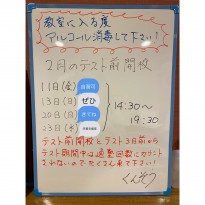 教室に入る度
アルコール消毒して下さい!
2月のテスト前開校
11日(金)
13日(日) ぜひ
20日(日) きてね
23日(水)
14:30〜
19:30
テスト前開校とテスト3日前から
テスト期間中は通塾回数にカウント
されないのでたくさん来て下さい!
くんぞう